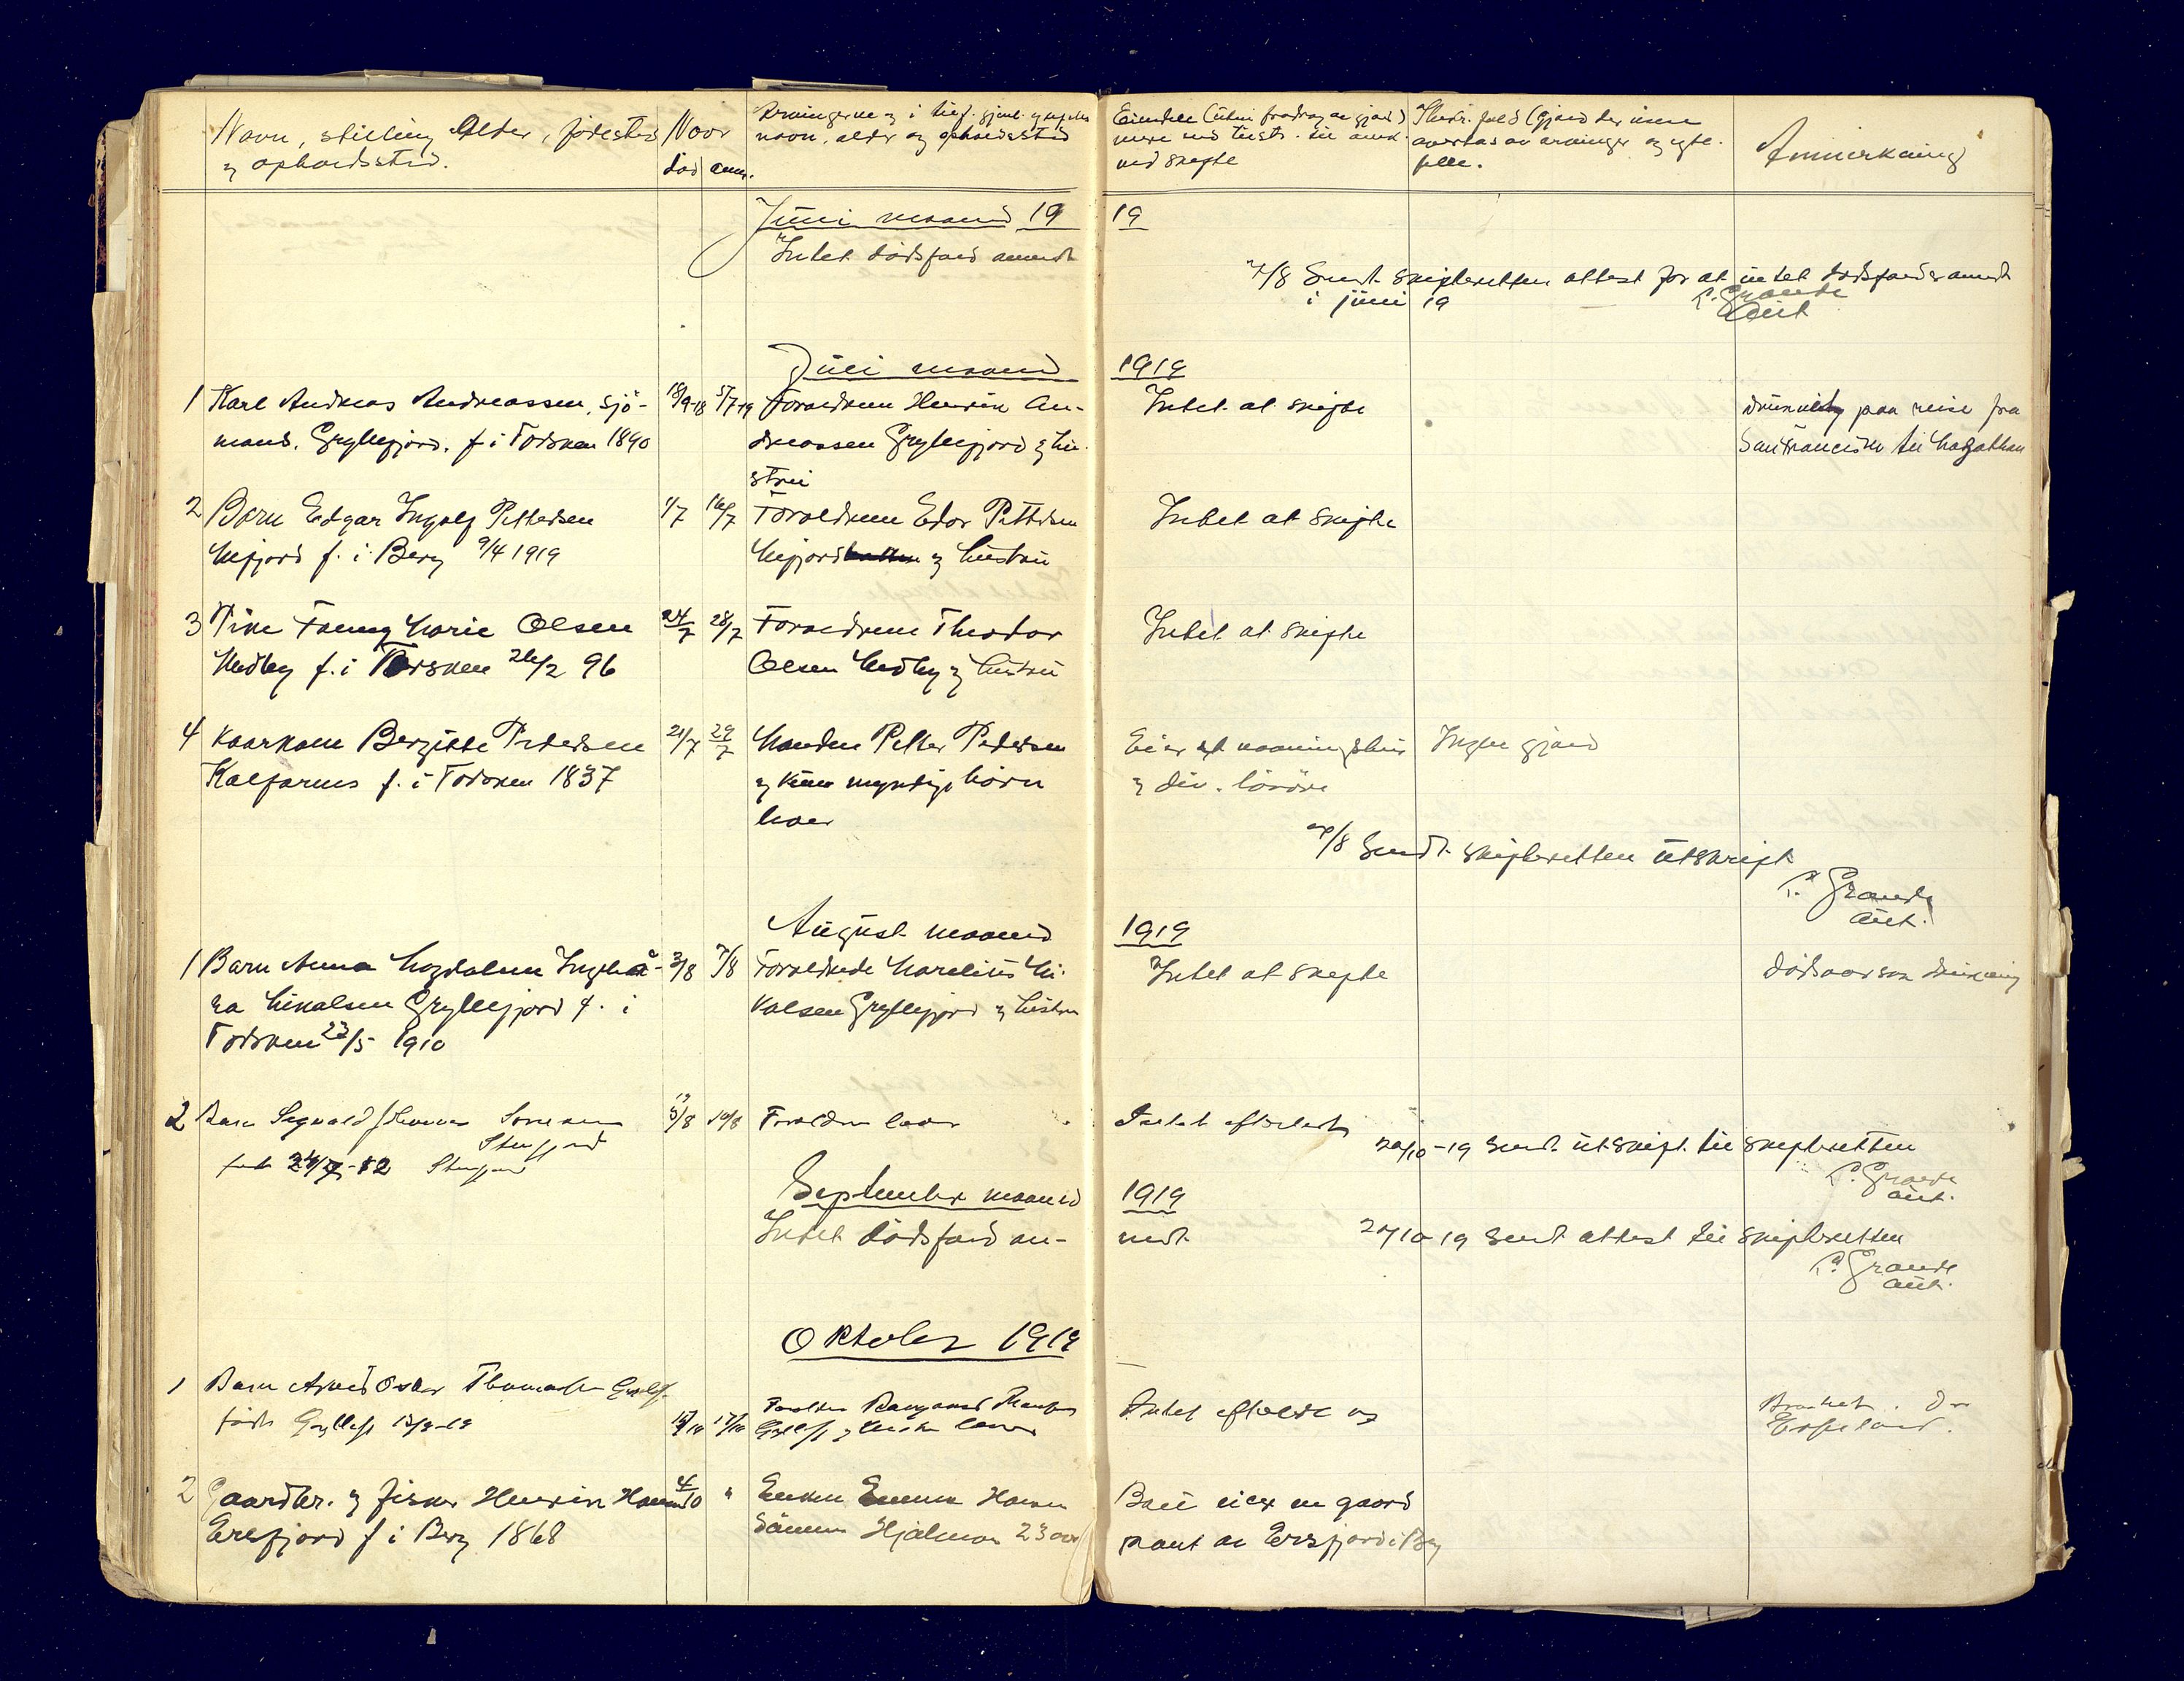 Navn, stilling Alder, fødested
og opholdssted.
Naar
død anm.
Arvingerne og i tilf. gjenl. egtefelles
navn, alder og opholdssted
Eiendele (uten fradrag av gjæld)
ved skifte
overtas av arvinger og egte-
felle.
Anmerkning
Juni maaned 19
19
Intet dødsfald anmeldt
/8 Sendt skifteretten attest for at intet dødsfald er anmeldt
i juni 19
P. Grande
Juli maaned
1919
1 Karl Andreas Andreassen, sjø-
mand, Gryllefjord, f. i Torsken 1890
18/9-18
5/7-19
Forældrene Henrik An-
dreassen Gryllefjord og hu-
stru
Intet at skifte
druknet paa reise fra
San Francisko til
2 Barn Edgar Ingolf Pettersen
Mefjord f. i Berg 9/4 1919
1/7
16/7
Forældrene Edor Pettersen
Mefjord og hustru
Intet at skifte
3 Pike Fanny Marie Olsen
Medby f. i Torsken 26/2 96
24/7
28/7
Forældrene Theodor
Olsen Medby og hustru
Intet at skifte
4 Kaarkone Bergitte Pedersen
Kalfarnes f. i Torsken 1837
21/7
29/7
Manden Petter Pedersen
og kun myndige børn
lever
Eier et vaaningshus
og div. løsøre
Ingen gjæld
/8 Sendt skifteretten utskrift
P. Grande
August maaned
1919
1 Barn Anna Magdalena Ingeba-
ra Mikalsen Gryllefjord f. i
Torsken 23/5 1910
3/8
7/8
Forældrene Marelius Mi-
kalsen Gryllefjord og hustru
Intet at skifte
Dødsaarsak drukning
2 Barn Sigvald Sørensen
Stenfjord
født 24/7-12 Stenfjord
5/8
19/8
Forældrene lever
Intet efterlatt
20/10-19 Sendt utskrift til skifteretten
P. Grande
September maaned
1919
Intet dødsfald an-
meldt
20/10-19 Sendt attest til skifteretten
P. Grande
Oktober 1919
1 Barn Arved Oskar Thomassen Gryllefj.
født Gryllefj
17/10
Forældre
Gryllefj og hustru lever
Intet
2 Gaardbr. og fisker Henrik Hansen
Ersfjord f i Berg 1868
4/10
"
Enken Hansen
Sønnen Hjalmar 23 aar
Boet eier en gaard
part av Ersfjord i Berg